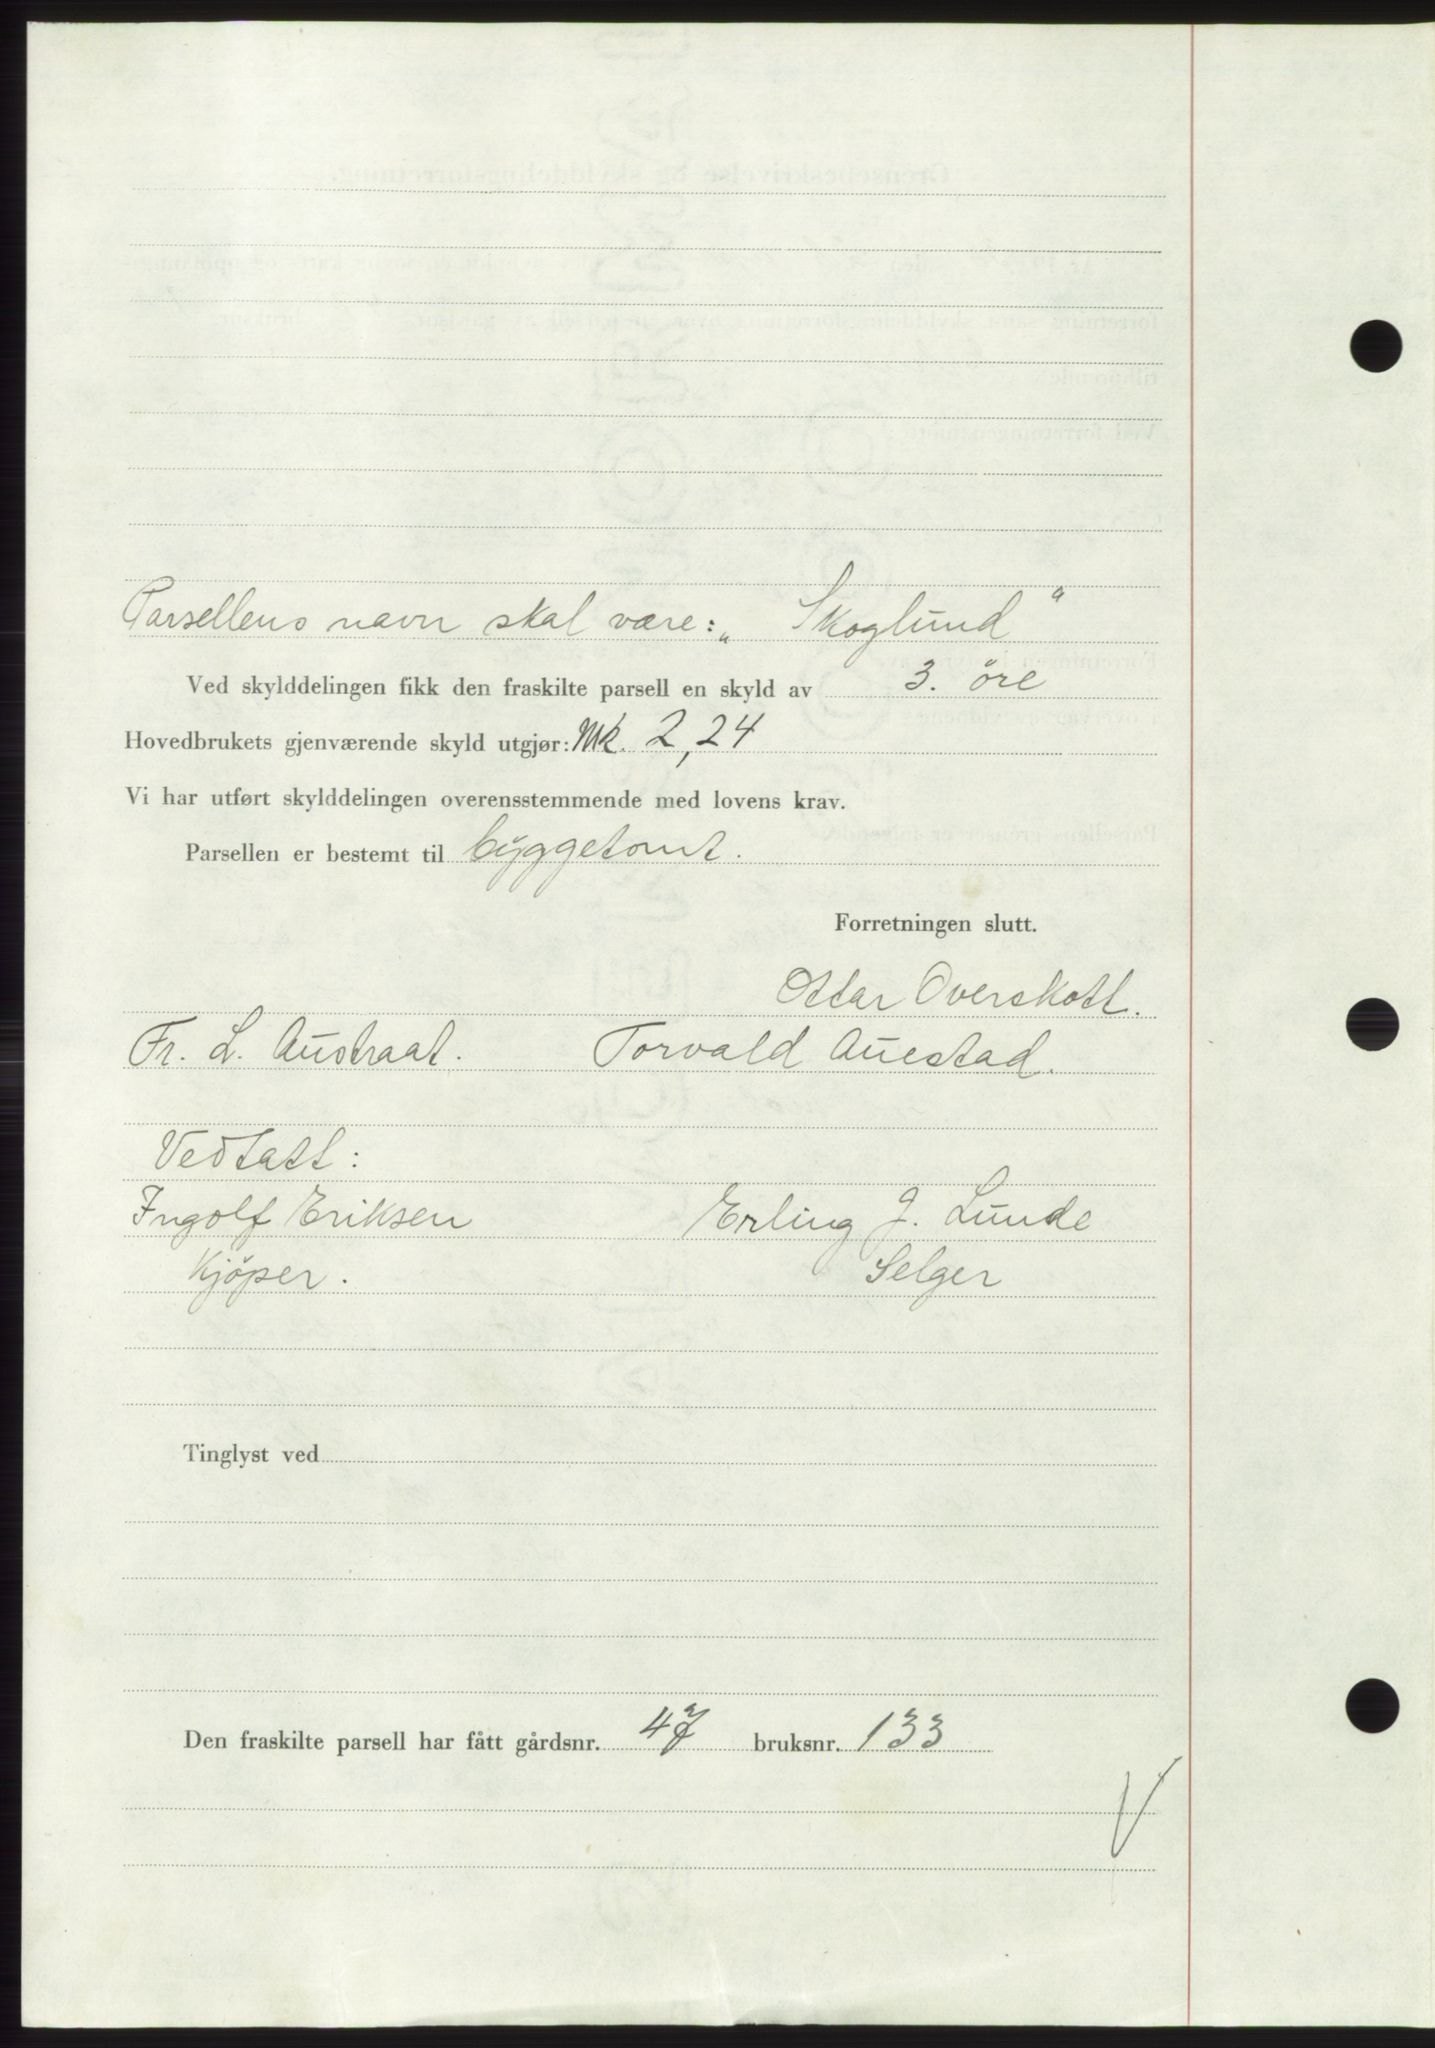 Parsellens navn skal være: „ Skoglund "
Ved skylddelingen fikk den fraskilte parsell en skyld av 3. öre
Hovedbrukets gjenværende skyld utgjør: Mk. 2,24
Vi har utført skylddelingen overensstemmende med lovens krav.
Parsellen er bestemt til byggetomt.
Forretningen slutt.
Ottar Overskott.
Fr. L. Austraat. Torvald Auestad.
Vedtatt:
Ingolf Eriksen Erling J. Lunde
Kjöper. Selger
Tinglyst ved
Den fraskilte parsell har fått gårdsnr. 47 bruksnr. 133
V